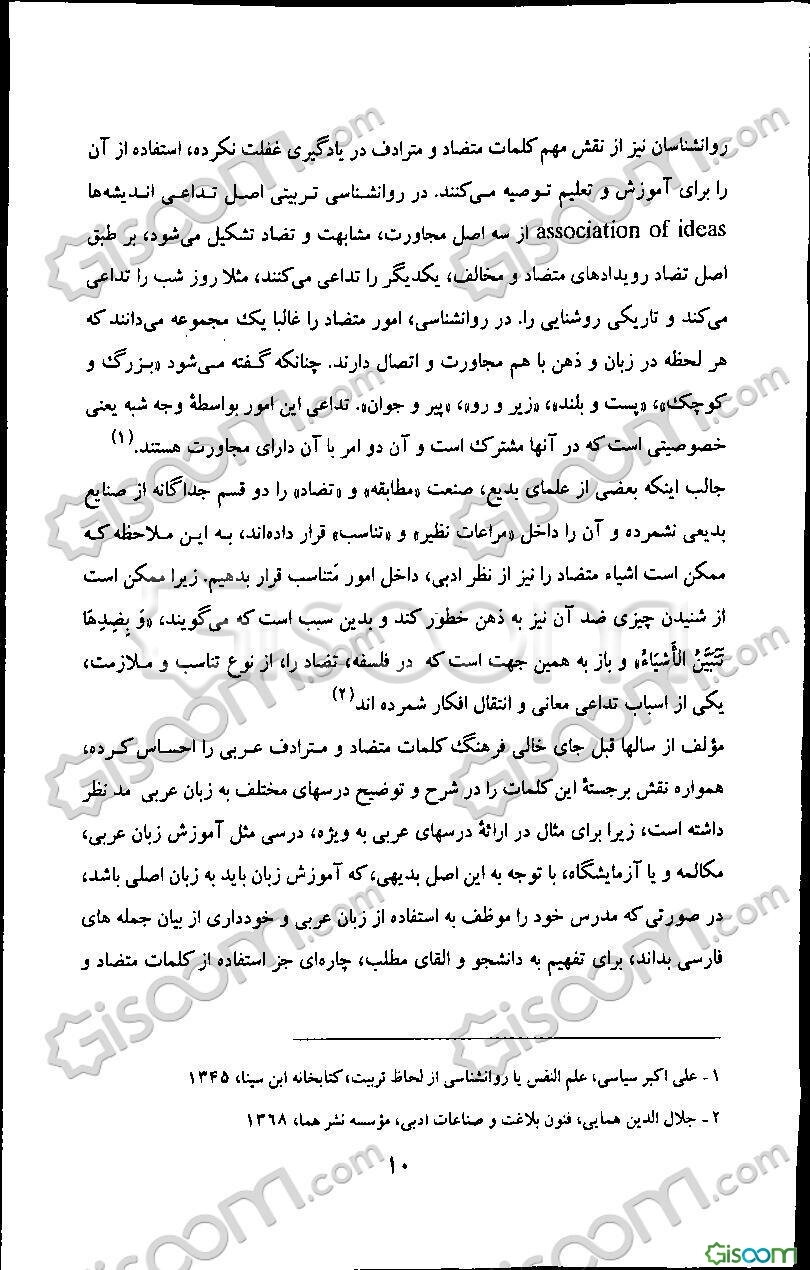 روانشناسان نیز از نقش مهم کلمات متضاد و مترادف در یادگیری غفلت نکرده، استفاده از آن
را برای آموزش و تعلیم توصیه می‌کنند. در روانشناسی تربیتی اصل تداعی اندیشه‌ها
association of ideas از سه اصل مجاورت، مشابهت و تضاد تشکیل می‌شود، بر طبق
اصل تضاد رویدادهای متضاد و مخالف، یکدیگر را تداعی می‌کنند، مثلا روز شب را تداعی
می‌کند و تاریکی روشنایی را. در روانشناسی، امور متضاد را غالبا یک مجموعه می‌دانند که
هر لحظه در زبان و ذهن با هم مجاورت و اتصال دارند. چنانکه گفته می‌شود «بزرگ و
کوچک»، «پست و بلند»، «زیر و رو»، «پیر و جوان». تداعی این امور بواسطۀ وجه شبه یعنی
خصوصیتی است که در آنها مشترک است و آن دو امر با آن دارای مجاورت هستند.(۱)
جالب اینکه بعضی از علمای بدیع، صنعت «مطابقه» و «تضاد» را دو قسم جداگانه از صنایع
بدیعی نشمرده و آن را داخل «مراعات نظیر» و «تناسب» قرار داده‌اند، به این ملاحظه که
ممکن است اشیاء متضاد را نیز از نظر ادبی، داخل امور مُتناسب قرار بدهیم. زیرا ممکن است
از شنیدن چیزی ضد آن نیز به ذهن خطور کند و بدین سبب است که می‌گویند، «وَ بِضِدِهَا
تَتَبَیَّنُ الأَشْیَاءُ» و باز به همین جهت است که در فلسفه، تضاد را، از نوع تناسب و ملازمت،
یکی از اسباب تداعی معانی و انتقال افکار شمرده اند(۲)
مؤلف از سالها قبل جای خالی فرهنگ کلمات متضاد و مترادف عربی را احساس کرده،
همواره نقش برجستۀ این کلمات را در شرح و توضیح درسهای مختلف به زبان عربی مد نظر
داشته است، زیرا برای مثال در ارائۀ درسهای عربی به ویژه، درسی مثل آموزش زبان عربی،
مکالمه و یا آزمایشگاه، با توجه به این اصل بدیهی، که آموزش زبان باید به زبان اصلی باشد،
در صورتی که مدرس خود را موظف به استفاده از زبان عربی و خودداری از بیان جمله های
فارسی بداند، برای تفهیم به دانشجو و القای مطلب، چاره‌ای جز استفاده از کلمات متضاد و
۱- علی اکبر سیاسی، علم النفس یا روانشناسی از لحاظ تربیت، کتابخانه ابن سینا، ۱۳۴۵
۲- جلال الدین همایی، فنون بلاغت و صناعات ادبی، مؤسسه نشر هما، ۱۳۶۸
۱۰
Gisoom